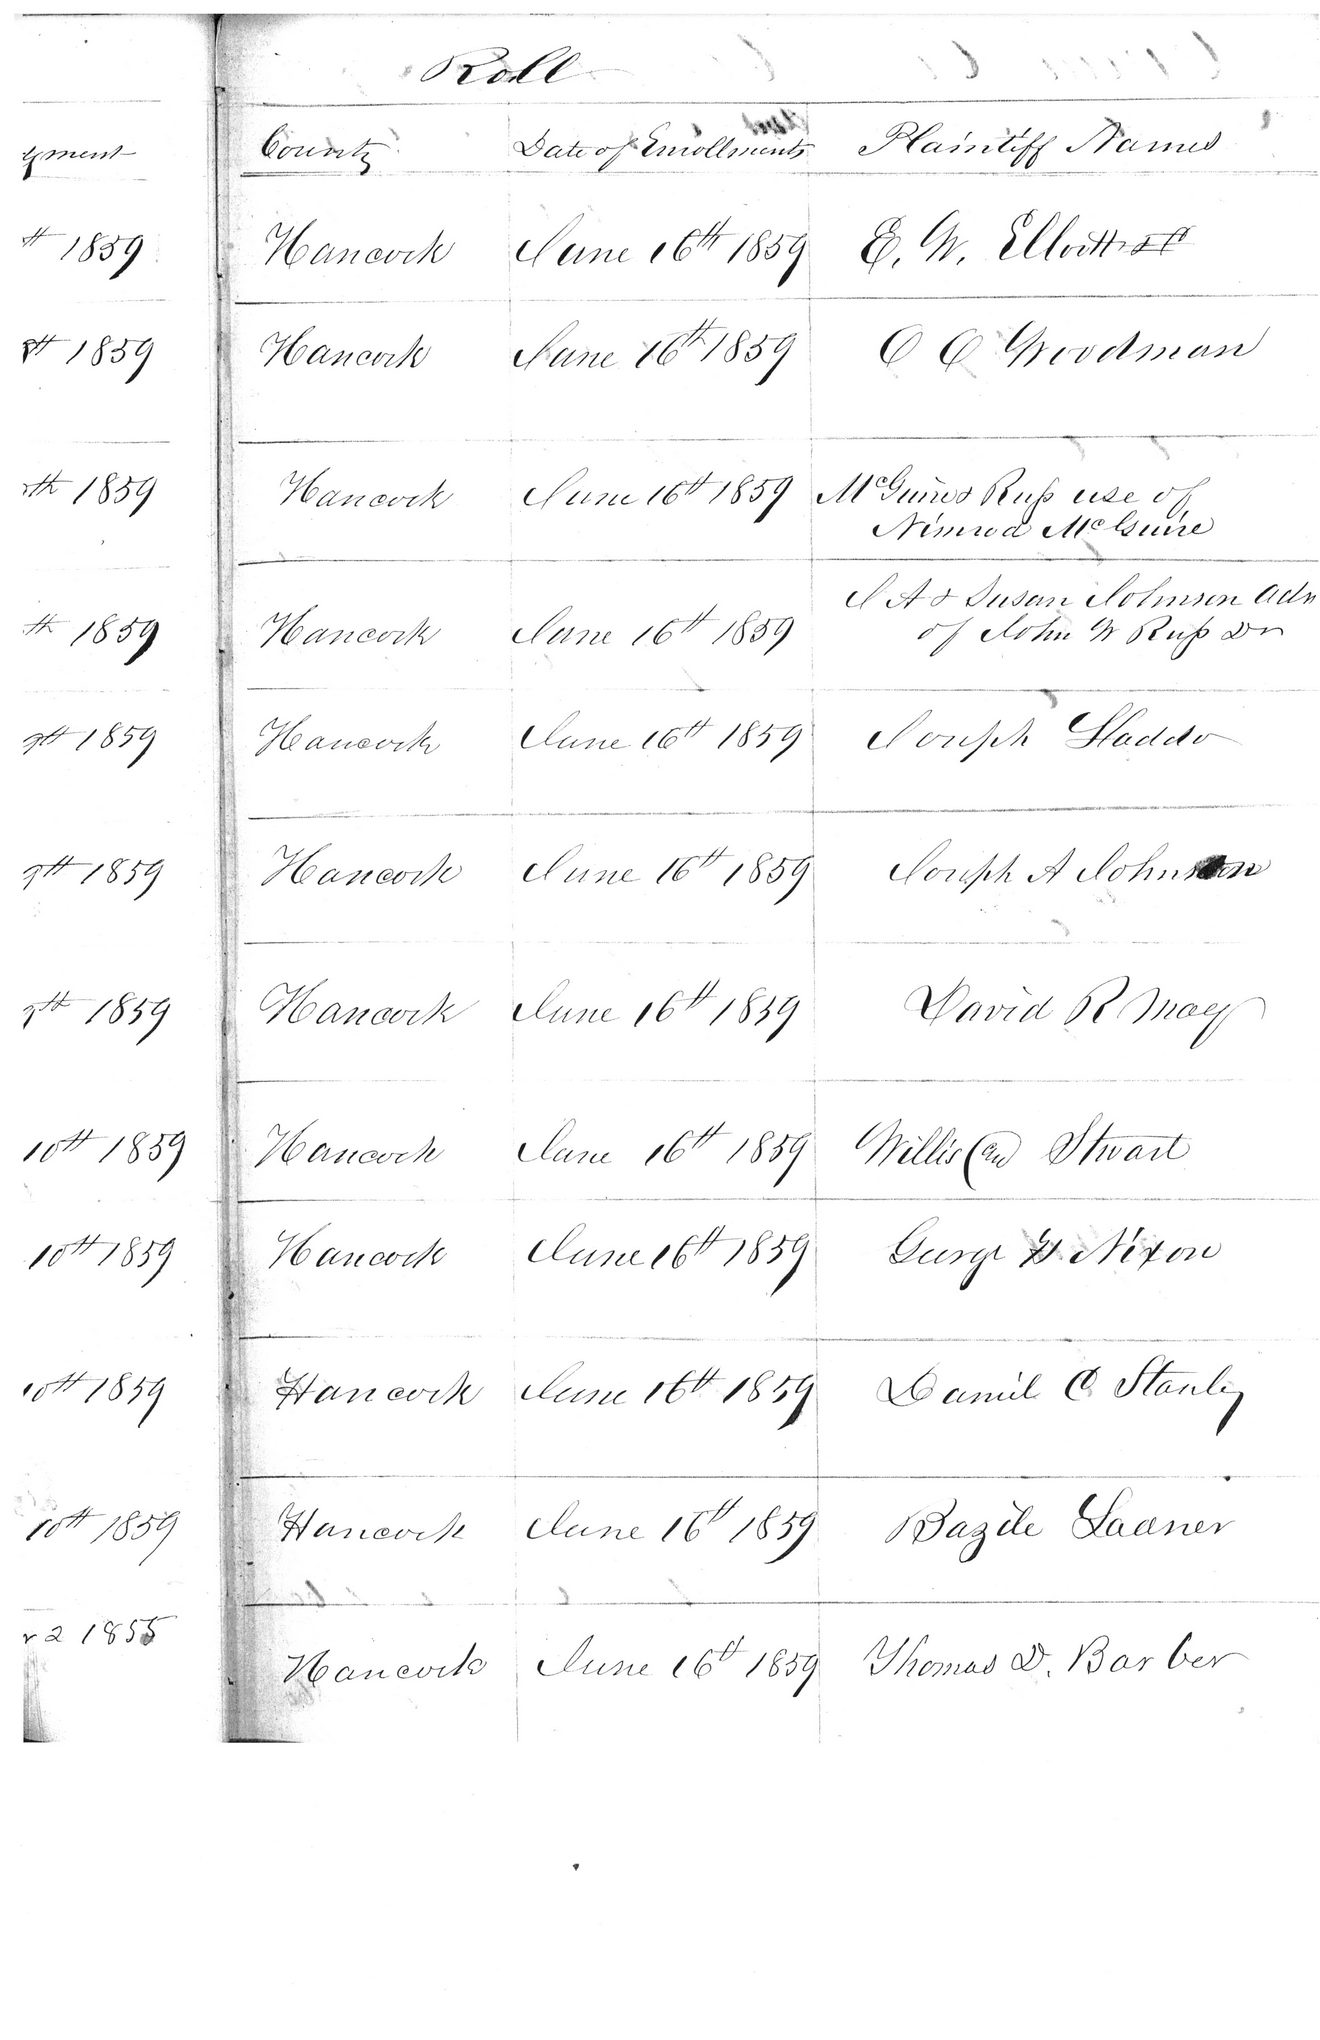 Roll
County Date of Enrollments Plaintiff Names
1859 Hancock June 16th 1859 E. W. Elliott
1859 Hancock June 16th 1859 C C Woodman
th 1859 Hancock June 16th 1859 McGuire & Russ use of
Nimrod McGuire
J A & Susan Johnson Adm
th 1859 Hancock June 16th 1859 of John W Russ Dr
th 1859 Hancock June 16th 1859 Joseph
th 1859 Hancock June 16th 1859 Joseph A Johnson
th 1859 Hancock June 16th 1859 David R May
10th 1859 Hancock June 16th 1859 Willis and Stuart
10th 1859 Hancock June 16th 1859 George G. Nixon
10th 1859 Hancock June 16th 1859 Daniel C Stanly
10th 1859 Hancock June 16th 1859 Bazile Ladner
2 1855
Hancock June 16th 1859 Thomas D. Barber